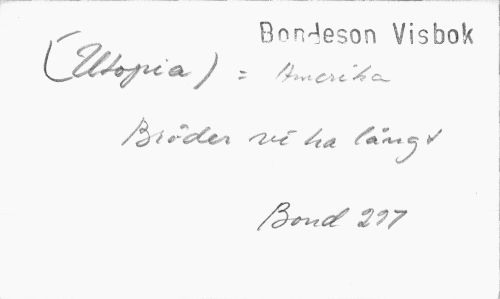 Bondeson Visbok
(Utopia) = Amerika
Bröder vi ha långt
Bond 297